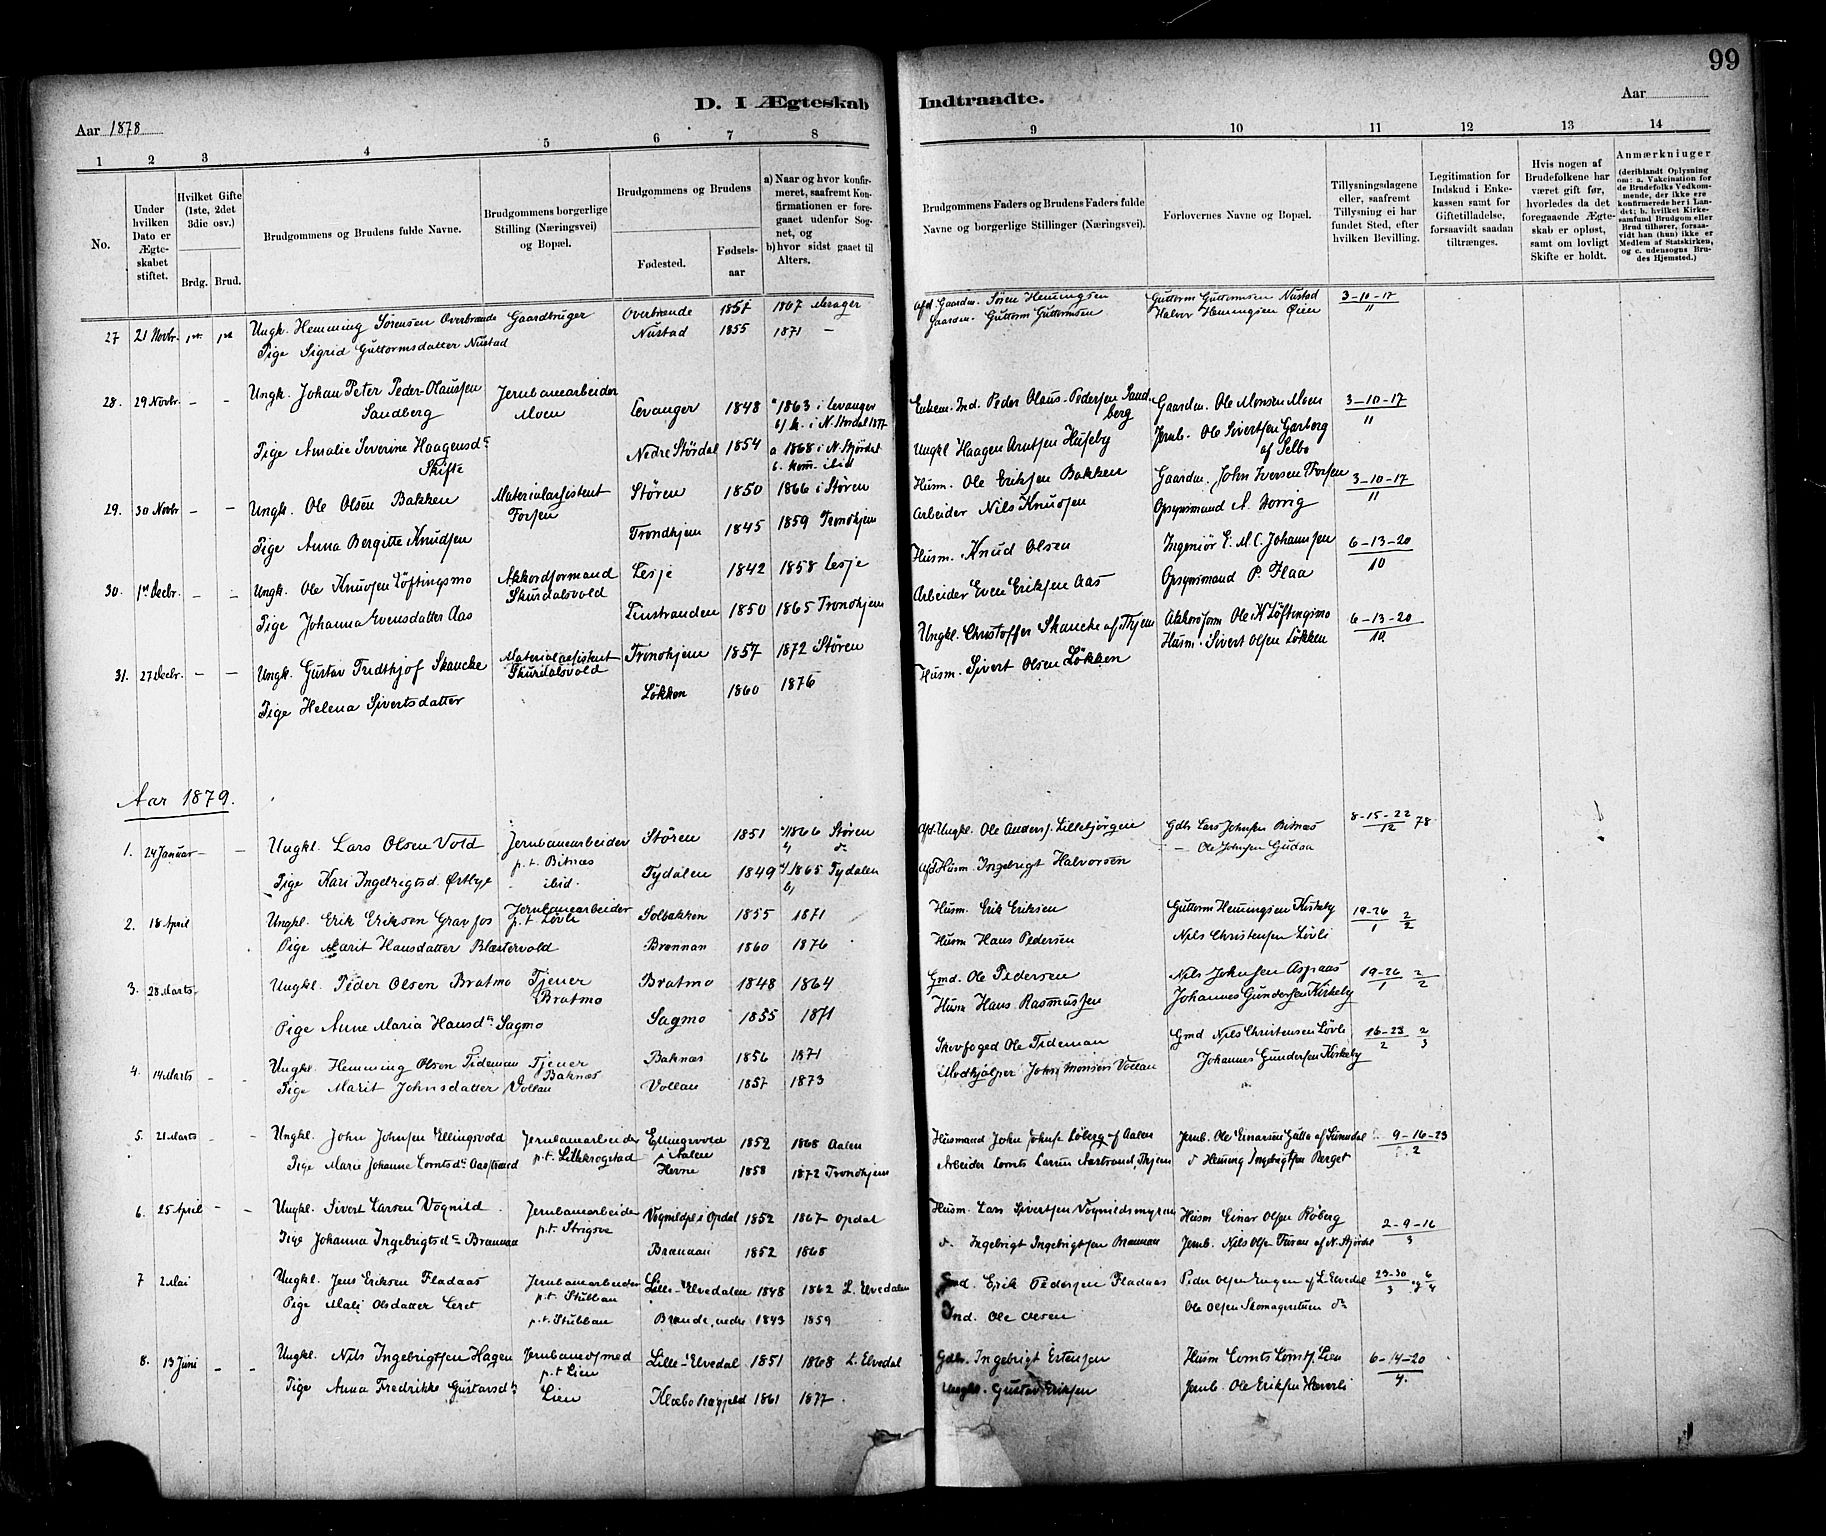 99
D. I Ægteskab Indtraadte.
Aar 1878
Aar
1 2 3 4 5 6 7 8 9 10 11 12 13 14
No.
Under hvilken Dato er Ægteskabet stiftet.
Hvilket Gifte (1ste, 2det 3die osv.)
Brdg. Brud.
Brudgommens og Brudens fulde Navne.
Brudgommens borgerlige Stilling (Næringsvei) og Bopæl.
Brudgommens og Brudens
Fødested.
Fødsels-aar
a) Naar og hvor konfirmeret, saafremt Konfirmationen er foregaaet udenfor Sognet, og
b) hvor sidst gaaet til Alters.
Brudgommens Faders og Brudens Faders fulde Navne og borgerlige Stillinger (Næringsvei).
Forlovernes Navne og Bopæl.
Tillysningsdagene eller, saafremt Tillysning ei har fundet Sted, efter hvilken Bevilling.
Legitimation for Indskud i Enkekassen samt for Giftetilladelse, forsaavidt saadan tiltrænges.
Hvis nogen af Brudefolkene har været gift før, hvorledes da det foregaaende Ægteskab er opløst, samt om lovligt Skifte er holdt.
Anmærkninger (deriblandt Oplysning om: a. Vakcination for de Brudefolks Vedkommende, der ikke ere konfirmerede her i Landet; b. hvilket Kirkesamfund Brudgom eller Brud tilhører, forsaavidt han (hun) ikke er Medlem af Statskirken, og c. udensogns Brudes Hjemsted.)
27 21 Novbr. 1ste 1ste Ungk. Hemming Sørensen Overbrænde Gaardbruger Overbrænde 1857 1867 Merager afd. Gaardm. Søren Hemingsen Guttorm Guttormsen Nustad 3-10-17/11
Pige Sigrid Guttormsdatter Nustad Nustad 1855 1871 — Gaardm. Guttorm Guttormsen Halvor Hemingsen Øien
28. 29 Novbr. – – Ungk. Johan Peter Peder-Olaussen Sandberg Jernbanearbeider Moen Levanger 1848 a 1863 i Levanger b) k. i N. Stördal 1877 Enkem. Ind. Peder Olaus-Pedersen Sandberg Gaardm. Ole Monsen Moen 3-10-17/11
Pige Amalie Severine Haagensdr. Skifte Nedre Stördal 1854 a 1868 i N. Stjørdal b. kom. ibid Ungkl Haagen Arntsen Huseby Jernb. Ole Sivertsen Garberg af Selbo
29. 30 Novbr – – Ungk. Ole Olsen Bakken Materialassistent Forsen Støren 1850 1866 i Støren Husm. Ole Eriksen Bakken Gaardm. John Iversen Forsen 3-10-17/11
Pige Anna Bergitte Knudsen Trondhjem 1845 1859 Trondhjem Arbeider Nils Knudsen Opsynsmand A. Norrig
30. 1ste Decbr. – – Ungk. Ole Knudsen Løftingsmo Akkordformand Skurdalsvold Lesje 1842 1858 Lesje Husm. Knud Olsen Ingeniør E. M. C. Johannsen 6-13-20/10
Pige Johanna Evensdatter Aas Tinstranden 1850 1865 Trondhjem Arbeider Even Eriksen Aas Opsynsmand P. Flaa
31. 27 Decbr. – – Ungk. Gustav Fridthjof Skancke Materialassistent Skurdalsvold Trondhjem 1857 1872 Støren Ungkl. Christoffer Skancke af Thjem Akkordform Ole K Løftingsmo 6-13-20/10
Pige Helena Sivertsdatter Løkken 1860 1876 Husm. Sivert Olsen Løkken Husm. Sivert Olsen Løkken
Aar 1879.
1. 24 Januar – – Ungkl. Lars Olsen Vold Jernbanearbeider p.t. Bitnæs Støren 1851 a/1866 Støren b/ d. Afd. Ungkl. Ole Anders. Lillebjørgen Gdbr Lars Johnsen Bitnæs 8-15-22/12 78
Pige Kari Ingebrigtsd. Østbye ibid. Tydalen 1849 a/1865 Tydalen b/ Afd Husm. Ingebrigt Halvorsen – Ole Johnsen Gudaa
2. 18 April Ungkl. Erik Eriksen Gravfos Jernbanearbeider p.t. Løvli Solbakken 1855 1871 Husm. Erik Eriksen Guttorm Hemingsen Kirkeby 19-26/1 2/2
Pige Marit Hansdatter Blæstervold Brennan 1860 1876 Husm Hans Pedersen Nils Christensen Løvli
3. 28 Marts Ungkl. Peder Olsen Bratmo Tjener Bratmo Bratmo 1848 1864 Gmd. Ole Pedersen Nils Johnsen Aspaas 19-26/1 2/2
Pige Anne Maria Hansdr Sagmo Sagmo 1855 1871 Husm Hans Rasmussen Johannes Gundersen Kirkeby
4. 14 Marts – – Ungkl. Hemming Olsen Tideman Tjener Baknæs Baknæs 1856 1871 Skovfoged Ole Tideman Gmd Nils Christensen Løvli 16-23/2 2/3
Pige Marit Johnsdatter Vollan Vollan 1857 1873 Medhjælper John Monsen Vollan Johannes Gundersen Kirkeby
5. 21 Marts – – Ungkl. John Johnsen Ellingsvold Jernbanearbeider p.t. Lillekrogstad Ellingsvold i Aalen 1852 1868 Aalen Husmand John Johns. Løberg af Aalen Jernb. Ole Einarsen Gutta af Sundal 9-16-23/2
Pige Marie Johanne Lorntsdr Aastrand Hevne 1858 1872 Trondhjem Arbeider Lornts Larsen Aastrand, Thjem d Heming Ingebrigtsen Berget
6. 25 April – – Ungkl. Sivert Larsen Vognild Jernbanearbeider p.t. Strigsve Vognildpl. i Opdal 1852 1867 Opdal Husm. Lars Sivertsen Vognildsmyren Husm Einar Olsen Røberg 2-9-16/3
Pige Johanna Ingebrigtsdr Brannan Brannan 1852 1868 d. Ingebrigt Ingebrigtsen Brannan Jernb. Nils Olsen Furan af N. Stjørdal
7 2 Mai Ungkl. Jens Eriksen Fladaas Jernbanearbeider p.t. Stubban Lille-Elvedalen 1848 1862 L. Elvedalen Gmd. Erik Pedersen Fladaas Peder Olsen Engen af L. Elvedal 23-30/3 og 6/4
Pige Mali Olsdatter Leret p.t. Stubban Brænde, nedre 1843 1859 Ind. Ole Olsen Ole Olsen Skomagerstuen dr
8. 13 Juni – – Ungkl. Nils Ingebrigtsen Hagen Jernbanesmed p.t Lien Lille-Elvedal 1851 1868 L. Elvedal Gdbr. Ingebrigt Estensen Husm Lornts Lorntz. Lien 6-14-20/4.
Pige Anna Fredrikke Gustavsdr. Lien Klæbo 1861 1877 Ungkl. Gustav Eriksen Jernb. Ole Eriksen Hæverli